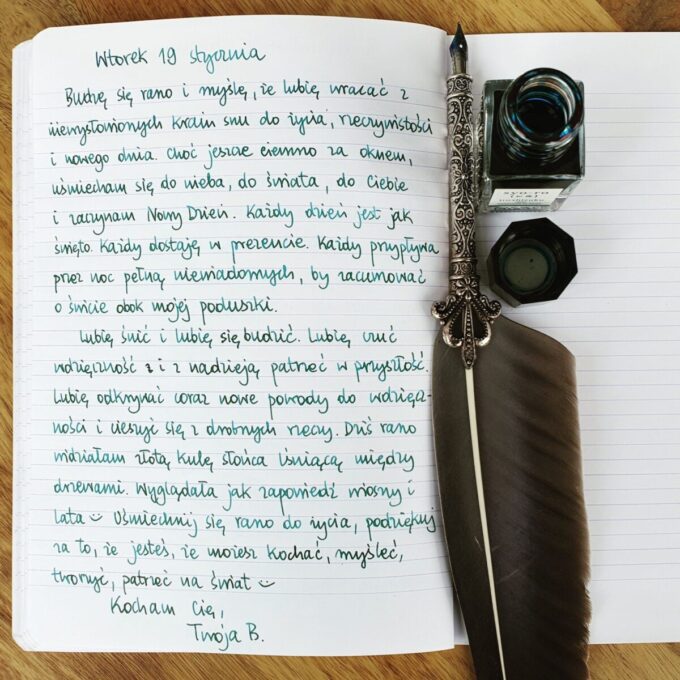 Wtorek 19 stycznia
Budzę się rano i myślę, że lubię wracać z
niewysłowionych krain snu do życia, rzeczywistości
i nowego dnia. Choć jeszcze ciemno za oknem,
uśmiecham się do nieba, do świata, do Ciebie
i zaczynam Nowy Dzień. Każdy dzień jest jak
święto. Każdy dostaję w prezencie. Każdy przypływa
przez noc pełną niewiadomych, by zacumować
o świcie obok mojej poduszki.
Lubię śnić i lubię się budzić. Lubię czuć
wdzięczność i z nadzieją patrzeć w przyszłość.
Lubię odkrywać coraz nowe powody do wdzięcz-
ności i cieszyć się z drobnych rzeczy. Dziś rano
widziałam złotą kulę słońca lśniącą między
drzewami. Wyglądała jak zapowiedź wiosny i
lata Uśmiechnij się rano do życia, podziękuj
za to, że jesteś, że możesz kochać, myśleć,
tworzyć, patrzeć na świat
Kocham Cię,
Twoja B.